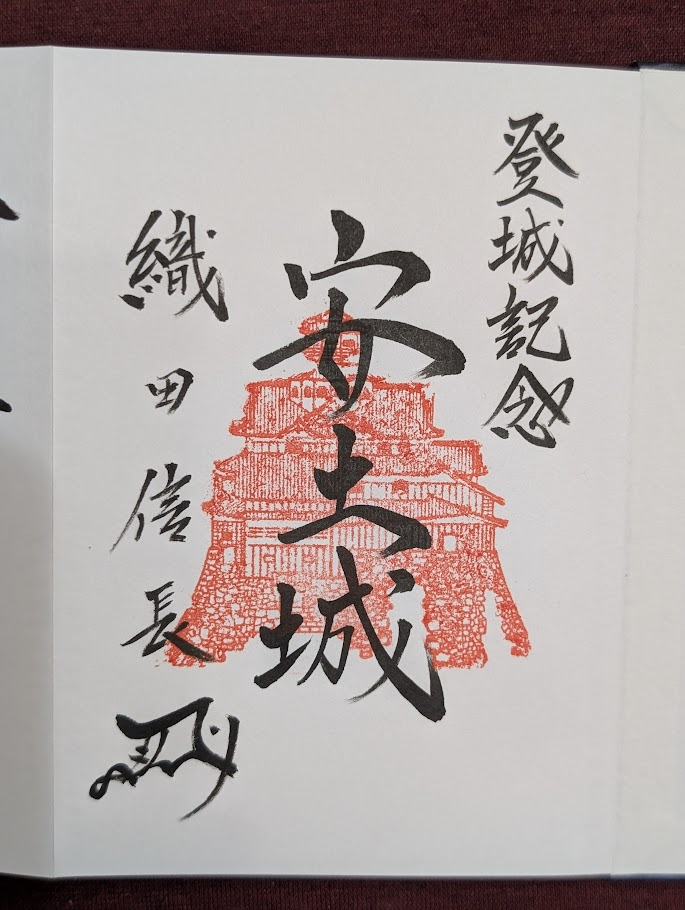 登城記念
安土城
織田信長